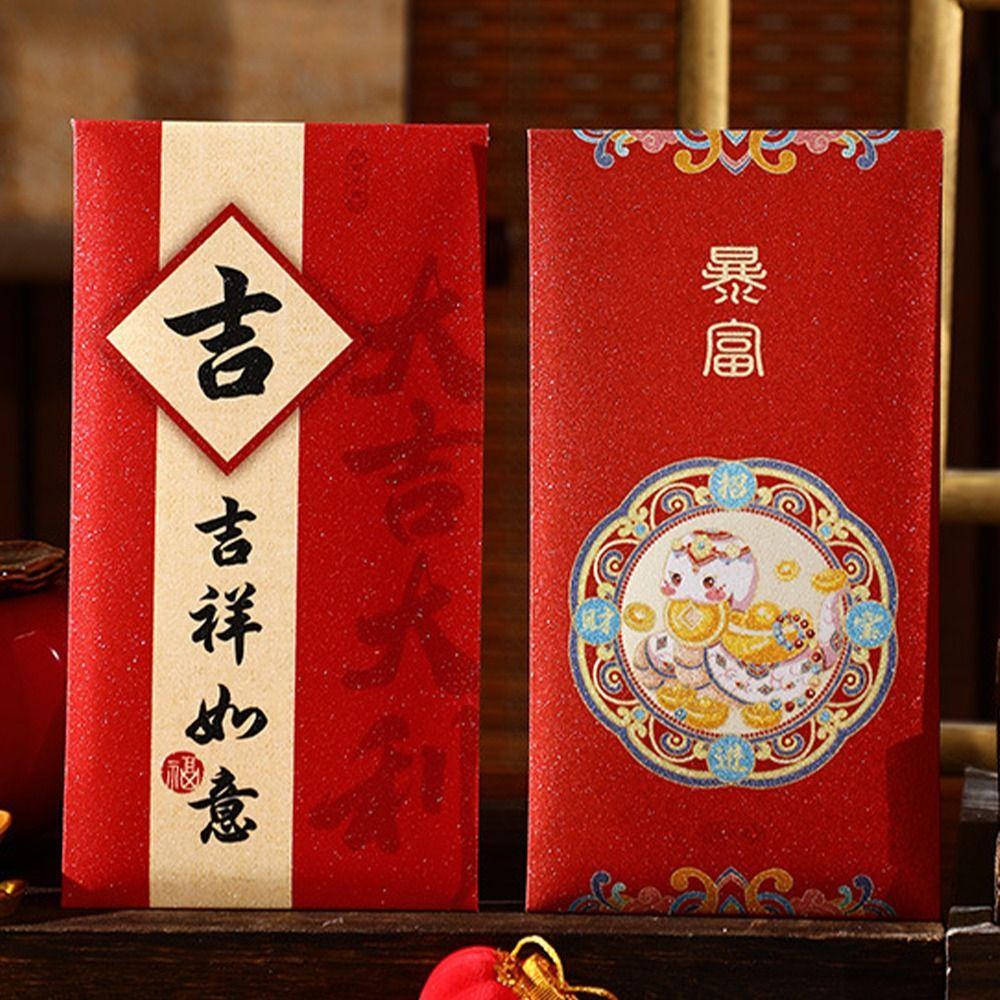 吉
吉祥如意
福
大吉大利
暴富
招财进宝